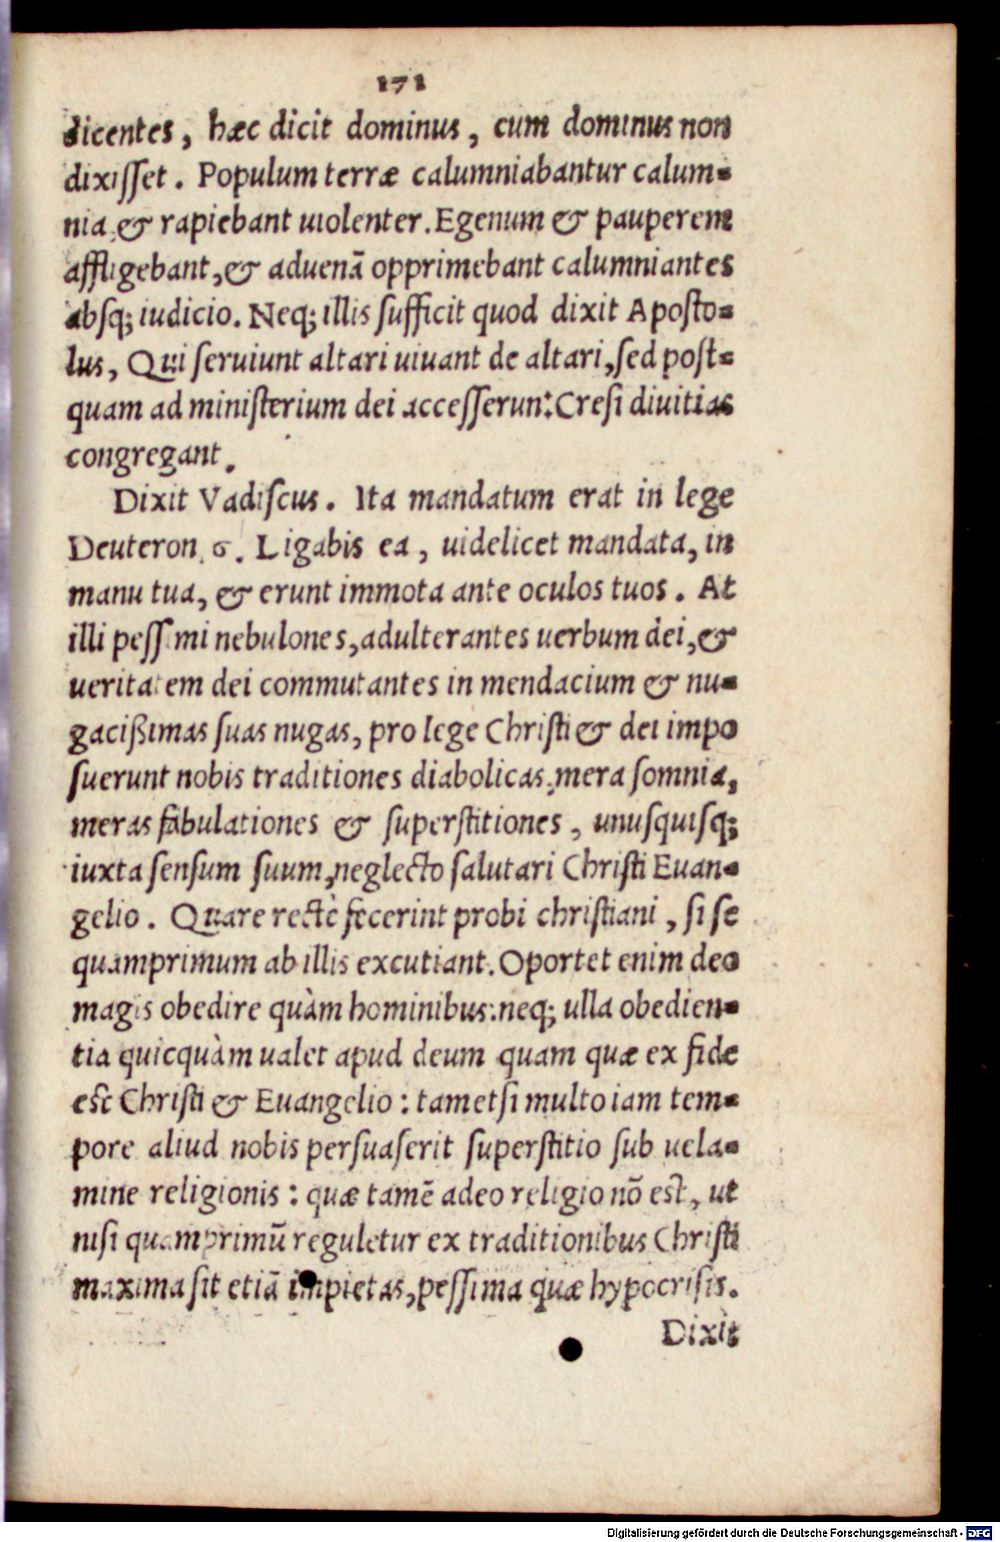 171
dicentes, hæc dicit dominus, cum dominus non
dixisset. Populum terræ calumniabantur calum-
nia & rapiebant uiolenter. Egenum & pauperem
affligebant, & aduenā opprimebant calumniantes
absq; iudicio. Neq; illis sufficit quod dixit Aposto-
lus, Qui seruiunt altari uiuant de altari, sed post-
quam ad ministerium dei accesserunt: Cresi diuitias
congregant.
Dixit Vadiscus. Ita mandatum erat in lege
Deuteron. 6. Ligabis ea, uidelicet mandata, in
manu tua, & erunt immota ante oculos tuos. At
illi pessimi nebulones, adulterantes uerbum dei, &
ueritatem dei commutantes in mendacium & nu-
gacißimas suas nugas, pro lege Christi & dei impo
suerunt nobis traditiones diabolicas, mera somnia,
meras fabulationes & superstitiones, unusquisq;
iuxta sensum suum, neglecto salutari Christi Euan-
gelio. Quare rectè fecerint probi christiani, si se
quamprimum ab illis excutiant. Oportet enim deo
magis obedire quàm hominibus: neq; ulla obedien-
tia quicquàm ualet apud deum quam quæ ex fide
est Christi & Euangelio: tametsi multo iam tem-
pore aliud nobis persuaserit superstitio sub uela-
mine religionis: quæ tamē adeo religio nō est, ut
nisi quamprimū reguletur ex traditionibus Christi
maxima sit etiā impietas, pessima quæ hypocrisis.
Dixit
Digitalisierung gefördert durch die Deutsche Forschungsgemeinschaft - DFG